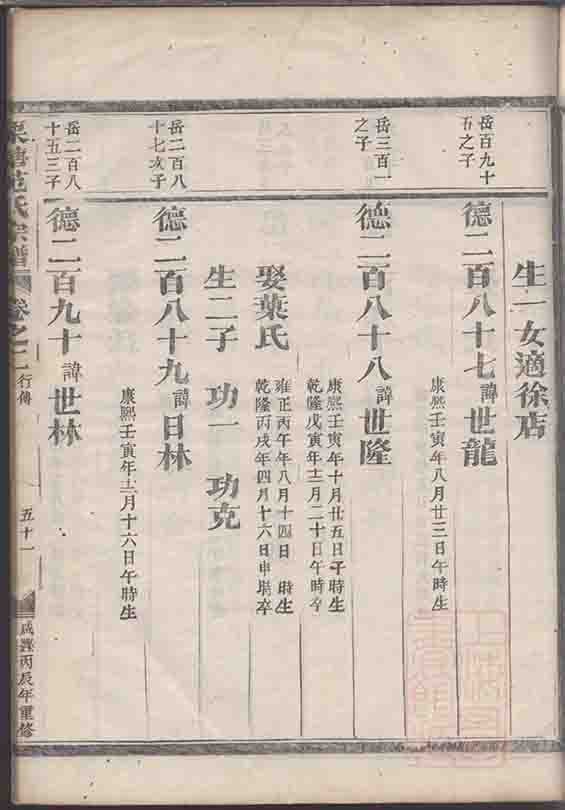 生一女適徐店
岳百九十
五之子
德二百八十七諱世龍
康熙壬寅年八月廿三日午時生
岳三百一
之子
德二百八十八諱世隆
康熙壬寅年十月廿五日子時生
乾隆戊寅年十二月二十日午時卒
娶葉氏
雍正丙午年八月十四日 時生
乾隆丙戌年四月十六日申時卒
生二子 功一 功克
岳二百八
十七次子
德二百八十九諱日林
康熙壬寅年十二月十六日午時生
岳二百八
十五三子
德二百九十諱世林
栗塘范氏宗譜 卷之二 行傳 五十一 咸豐丙辰年重修